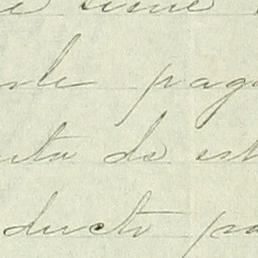 e tiene
ste pago
nta de est
ducto pa